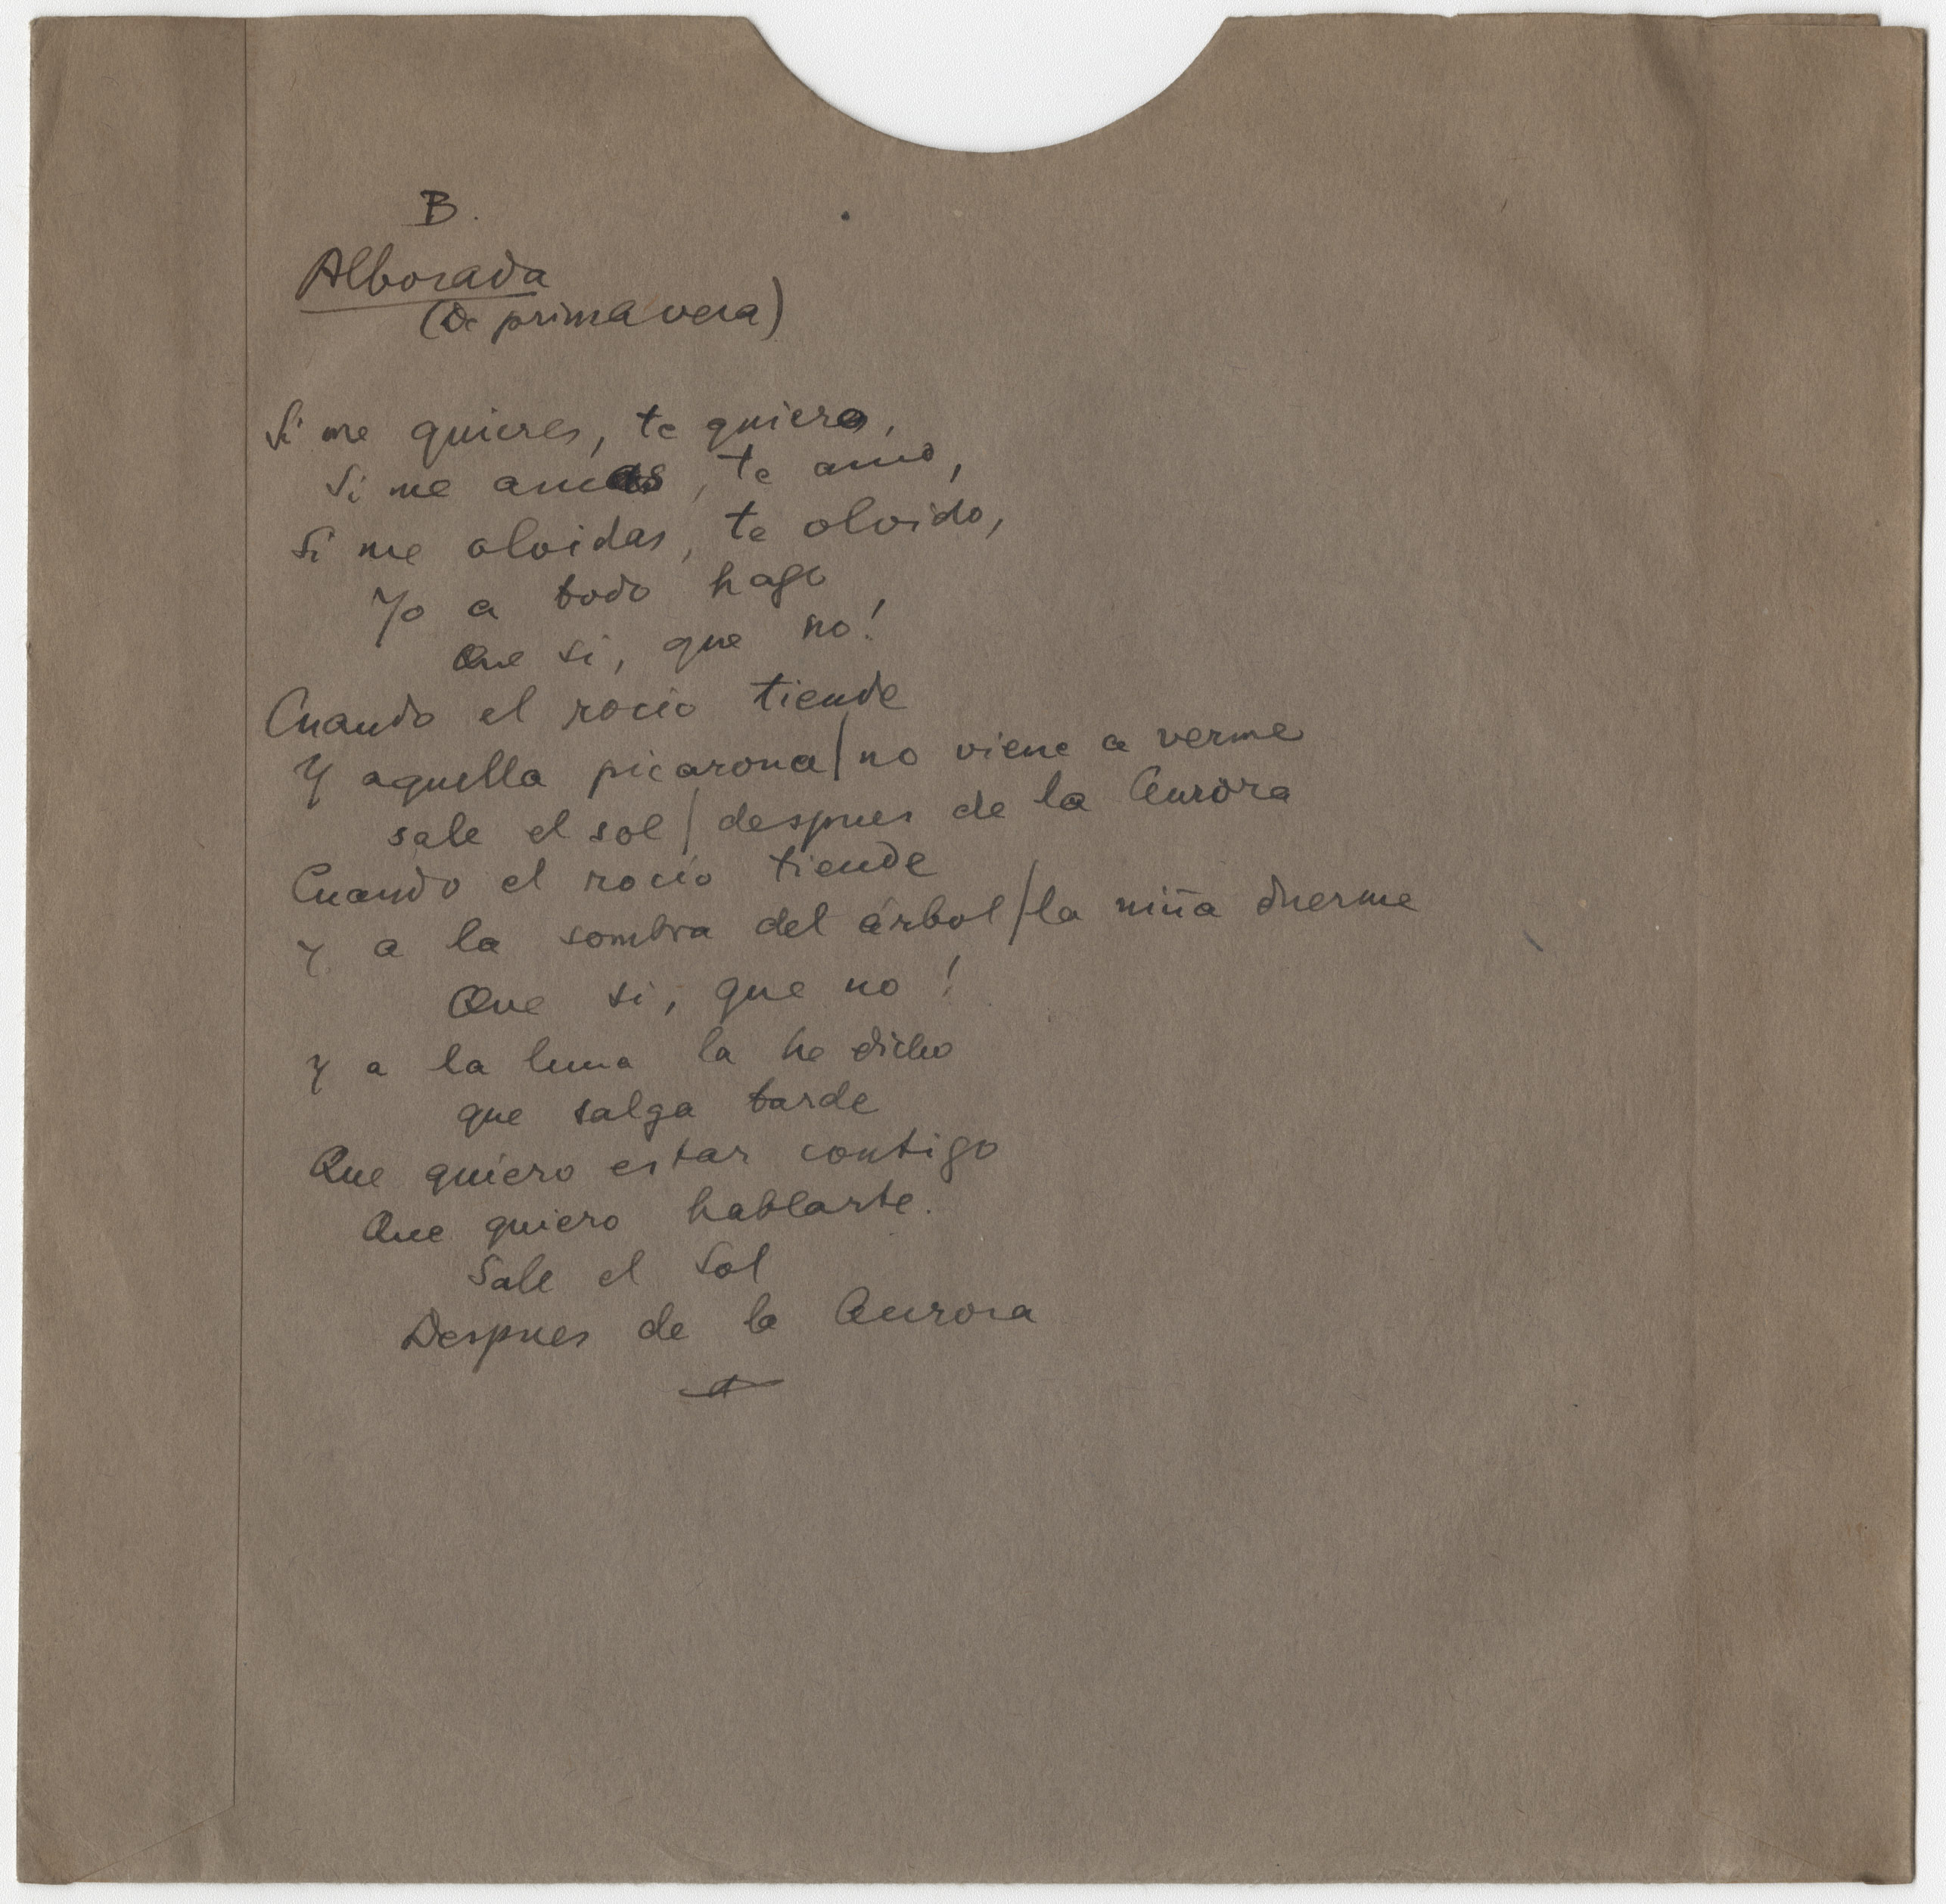 B.
Alborada
(De primavera)
Si me quieres, te quiero,
Si me amas, te amo,
Si me olvidas, te olvido,
Yo a todo hago
Que si, que no!
Cuando el rocio tiende
Y aquella picarona/no viene a verme
sale el sol/despues de la Aurora
Cuando el rocío tiende
Y a la sombra del árbol/la niña duerme
Que si, que no!
Y a la luna la he dicho
que salga tarde
Que quiero estar contigo
Que quiero hablarte.
Sale el Sol
Despues de la Aurora